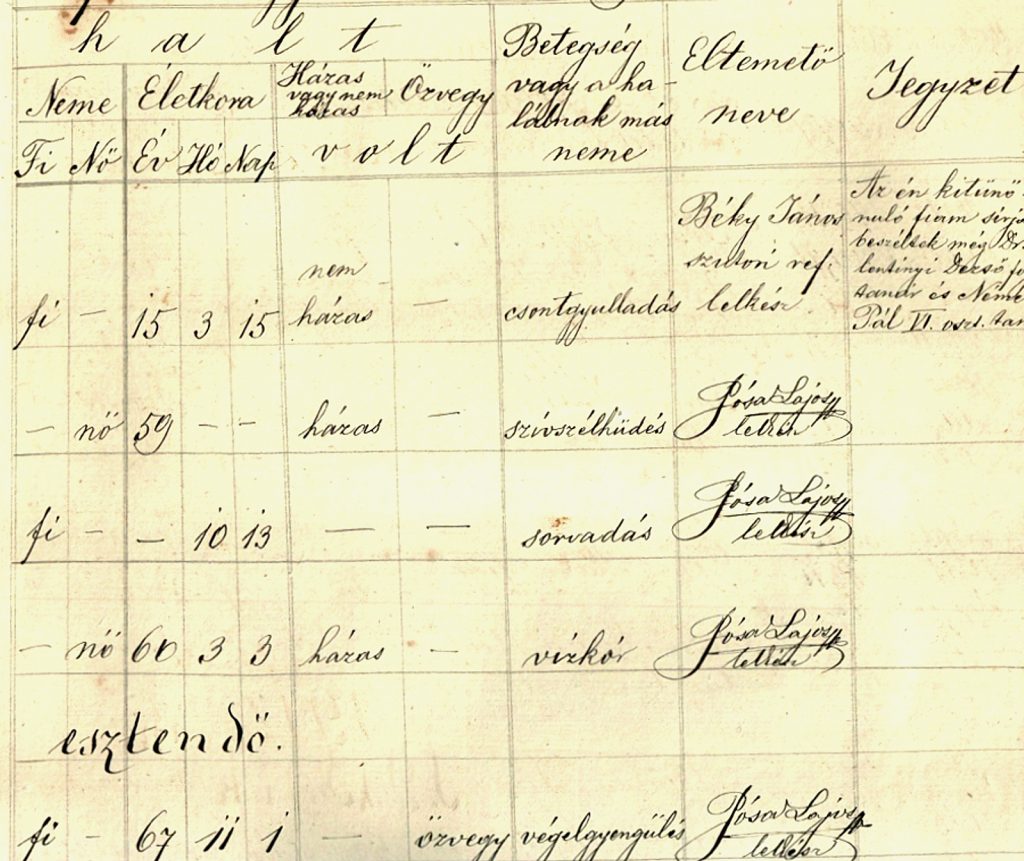 h a l t
Neme Életkora Házas vagy nem házas Özvegy Betegség vagy a halálnak más neme Eltemető neve Jegyzet
Fi Nő Év Hó Nap v o l t
fi — 15 3 15 nem házas — csontgyulladás Béky János szutori ref. lelkész
Az én kitünő
nuló fiam sírjá
beszéltek még Dr.
lentinyi Dezső fő
tanár és Néme
Pál VI. oszt. tan
— nő 59 — — házas — szívszélhüdés Pósa Lajos lelkész
fi — — 10 13 — — sorvadás Pósa Lajos lelkész
— nő 60 3 3 házas — vízkór Pósa Lajos lelkész
esztendő.
fi — 67 11 1 — özvegy végelgyengülés Pósa Lajos lelkész